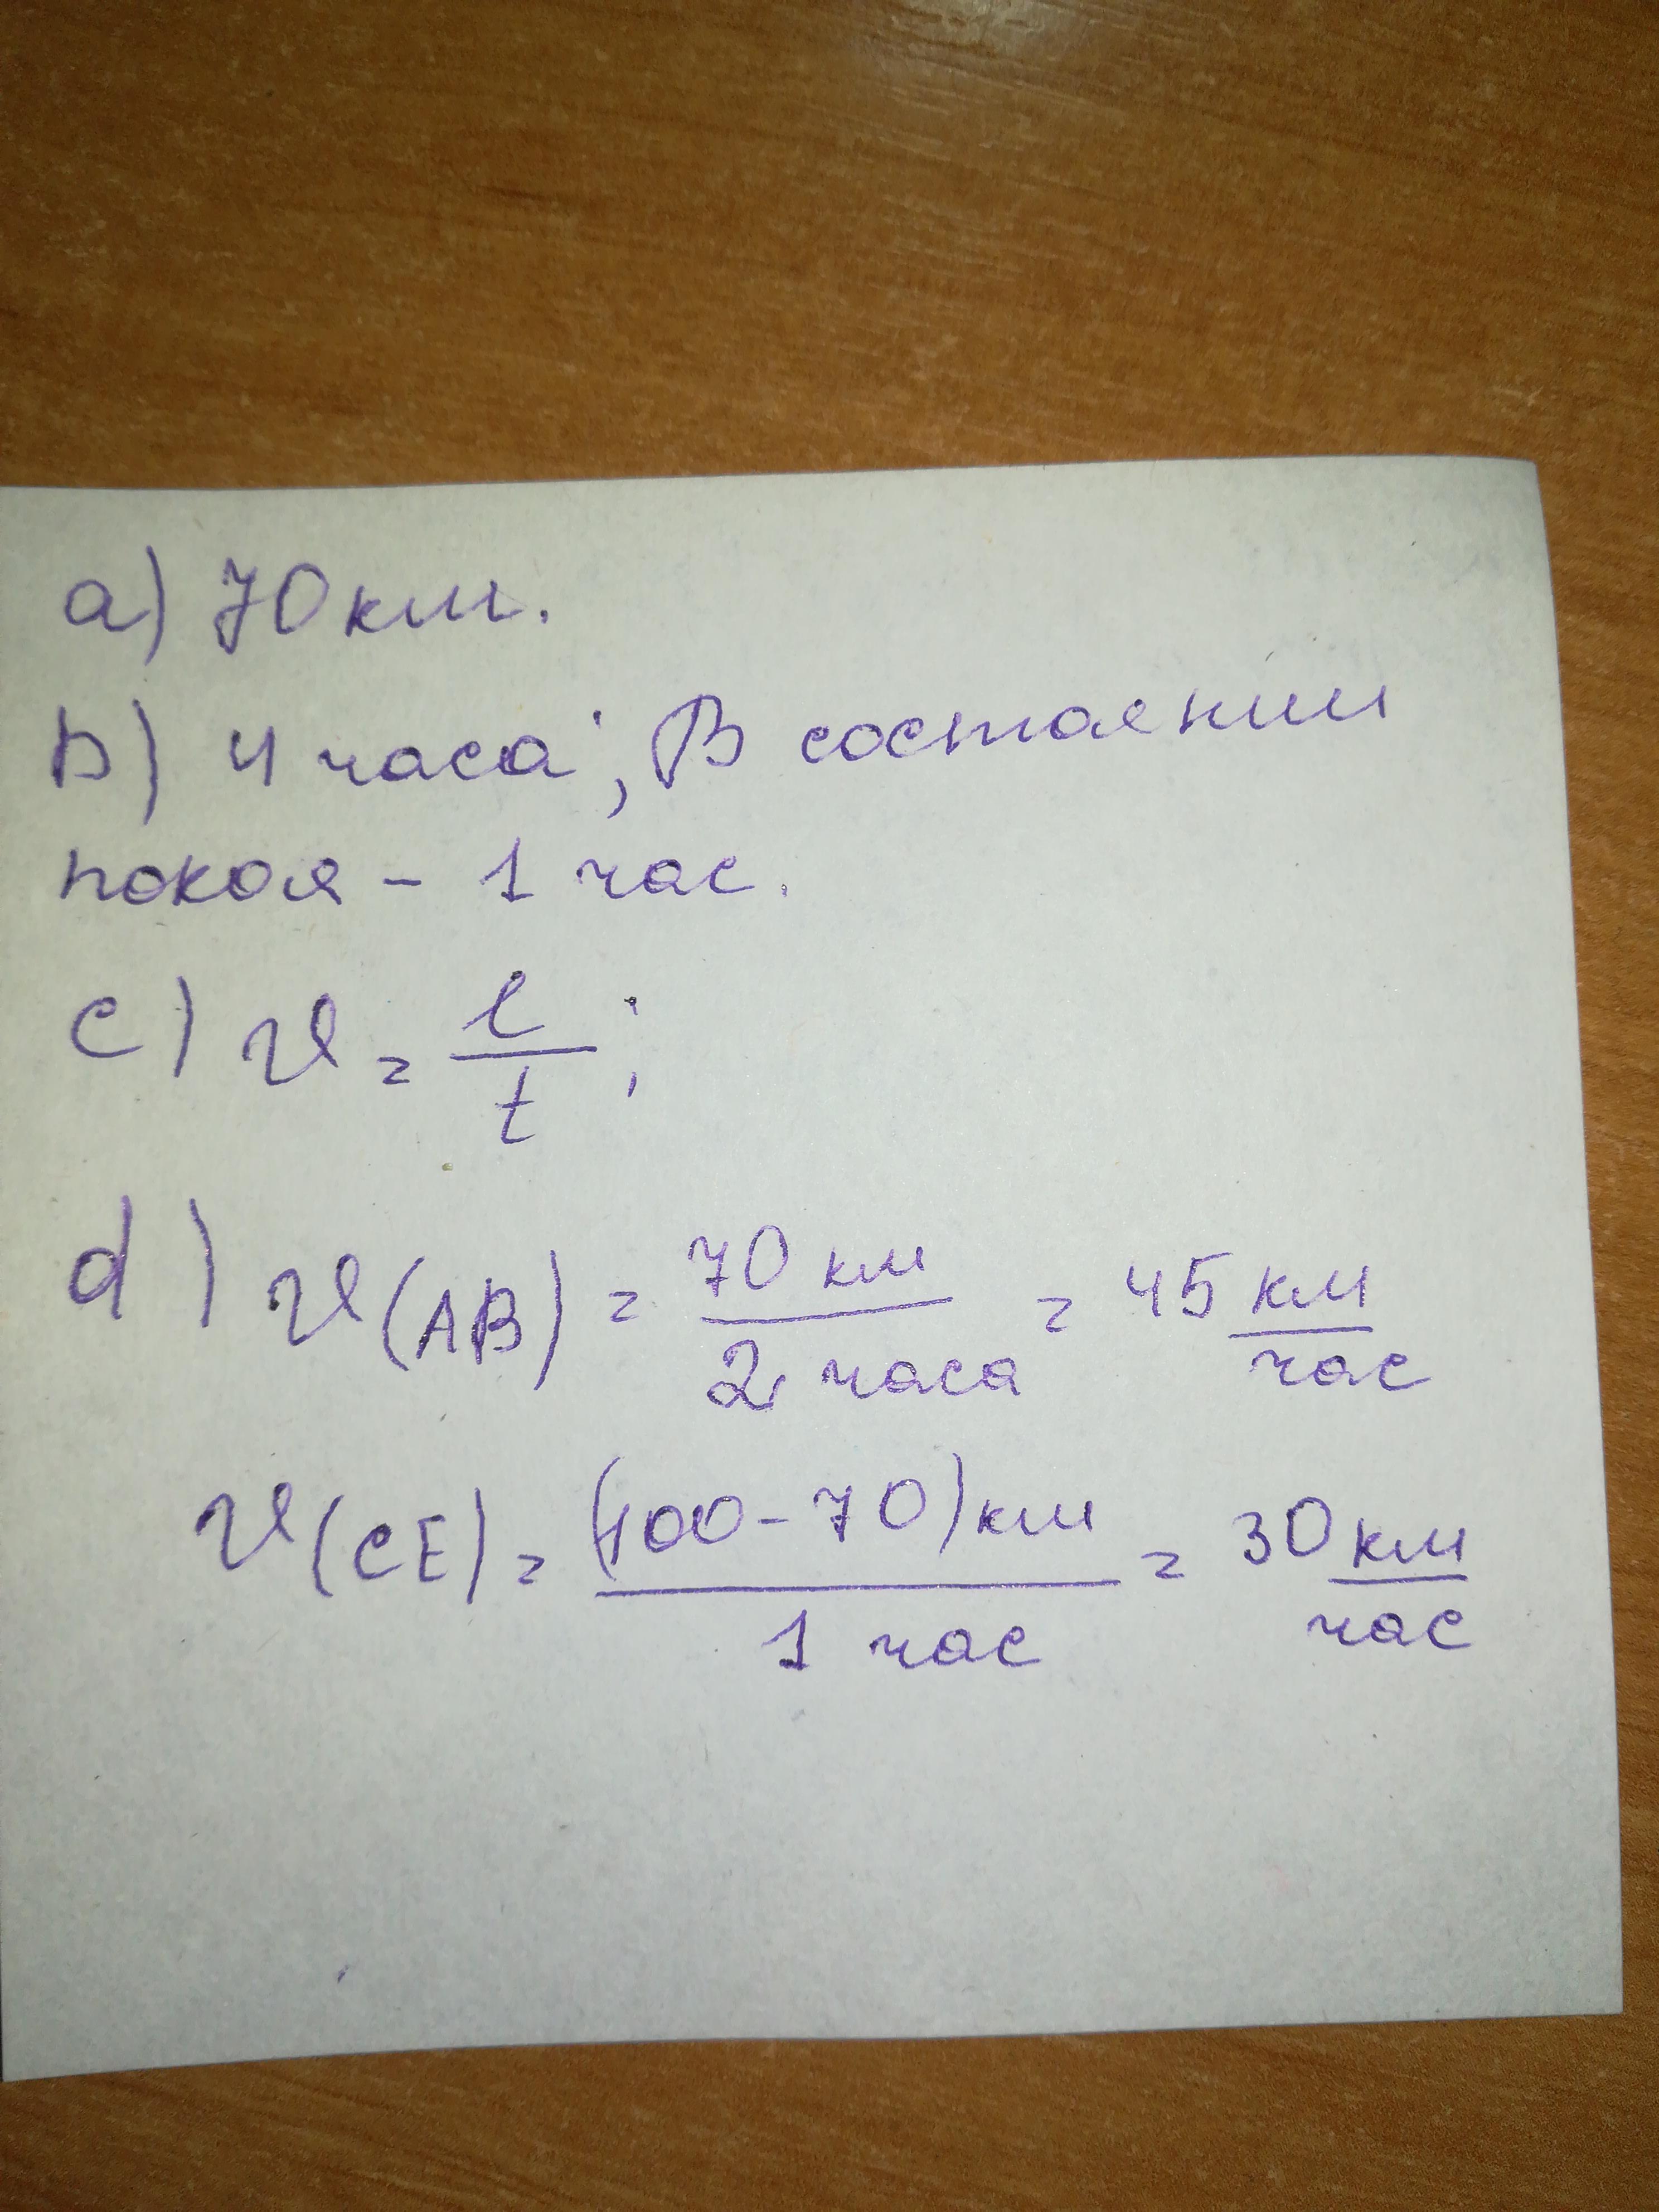 a) 70 км.
b) 4 часа; В состоянии
покоя - 1 час.
c) v = l/t;
d) v(AB) = 70 км/2 часа = 45 км/час
v(CE) = (100-70) км/1 час = 30 км/час